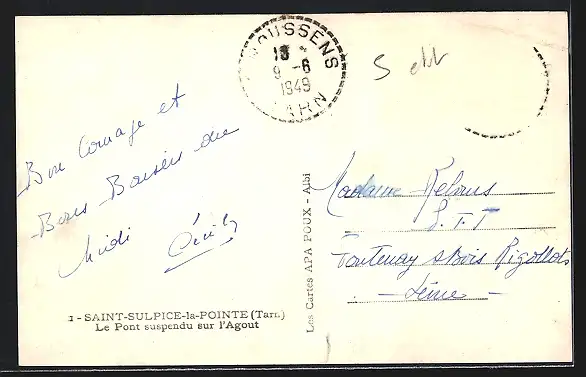 MOUSSENS
18 *
9 - 6
1949
TARN
Bon Courage et
Bons Baisers du
Midi Cécile
Madame
P.T.T
Fontenay s/Bois Rigollots
- Seine -
Les Cartes APA POUX - Albi
1 - SAINT-SULPICE-la-POINTE (Tarn)
Le Pont suspendu sur l'Agout